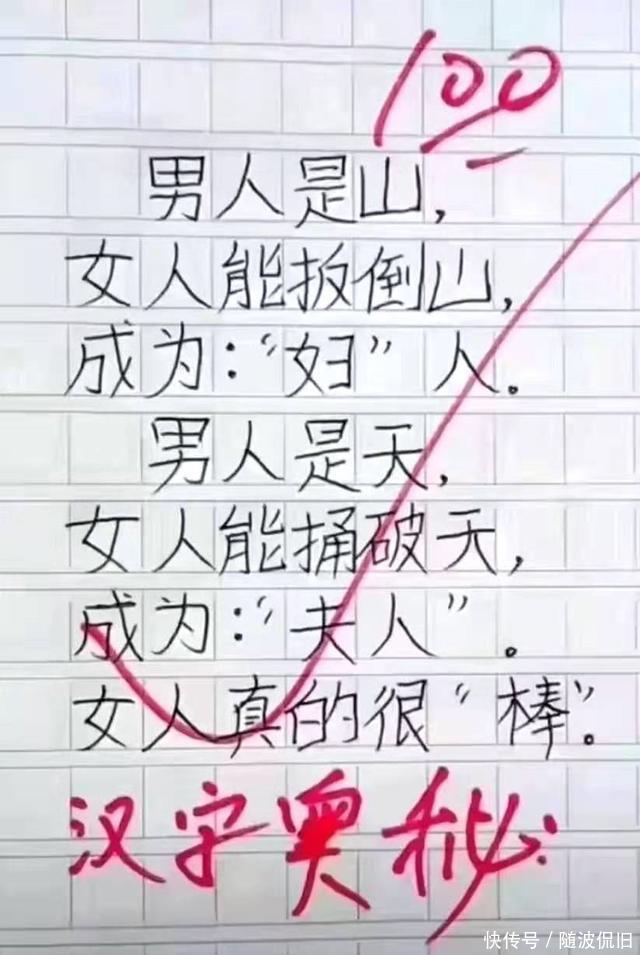 100
男人是山，
女人能扳倒山，
成为：“妇”人。
男人是天，
女人能捅破天，
成为：“夫人”。
女人真的很“棒”。
汉字奥秘
快传号／随波侃旧